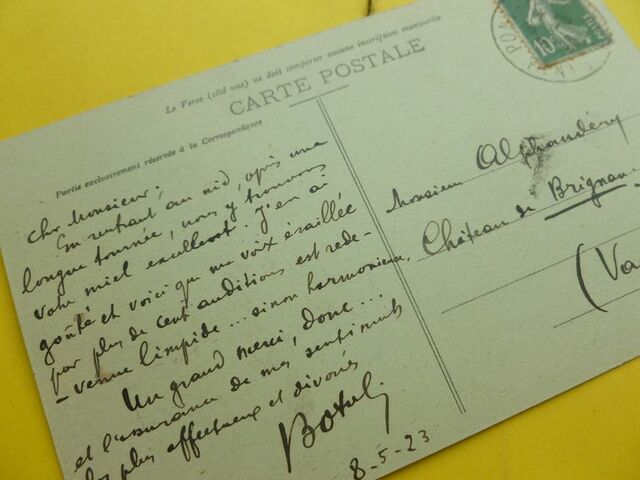 Le Verso (côté vue) ne doit comporter aucune inscription manuscrite
CARTE POSTALE
Partie exclusivement réservée à la Correspondance
10c
Cher Monsieur,
En rentrant au nid, après une
longue tournée, nous y trouvons
votre miel excellent. J'en ai
goûté et voici que ma voix éraillée
par plus de cent auditions est rede-
-venue limpide ... sinon harmonieuse,
Un grand merci, donc ...
et l'assurance de mes sentiments
les plus affectueux et dévoués
8-5-23
Monsieur Alphandéry
Château de Brignan
(Va